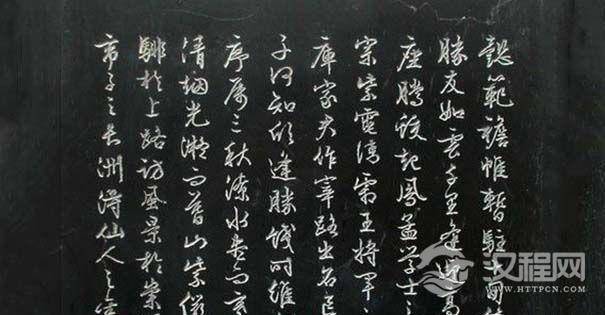 懿範襜帷暫駐十旬
勝友如雲千里逢迎高
座騰蛟起鳳孟學士之
宗紫電清霜王將軍之
庫家君作宰路出名區
子何知躬逢勝餞時維
序屬三秋潦水盡而寒
清煙光凝而暮山紫儼
騑於上路訪風景於崇
帝子之長洲得仙人之
汉程网
HTTPCN.COM